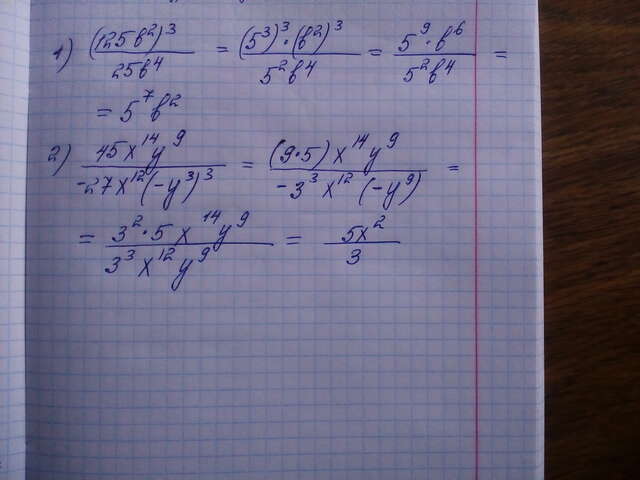 1) (125b²)³ / 25b⁴ = (5³)³·(b²)³ / 5²b⁴ = 5⁹·b⁶ / 5²b⁴ =
= 5⁷b²
2) 45x¹⁴y⁹ / -27x¹²(-y³)³ = (9·5)x¹⁴y⁹ / -3³x¹²(-y⁹) =
= 3²·5x¹⁴y⁹ / 3³x¹²y⁹ = 5x² / 3